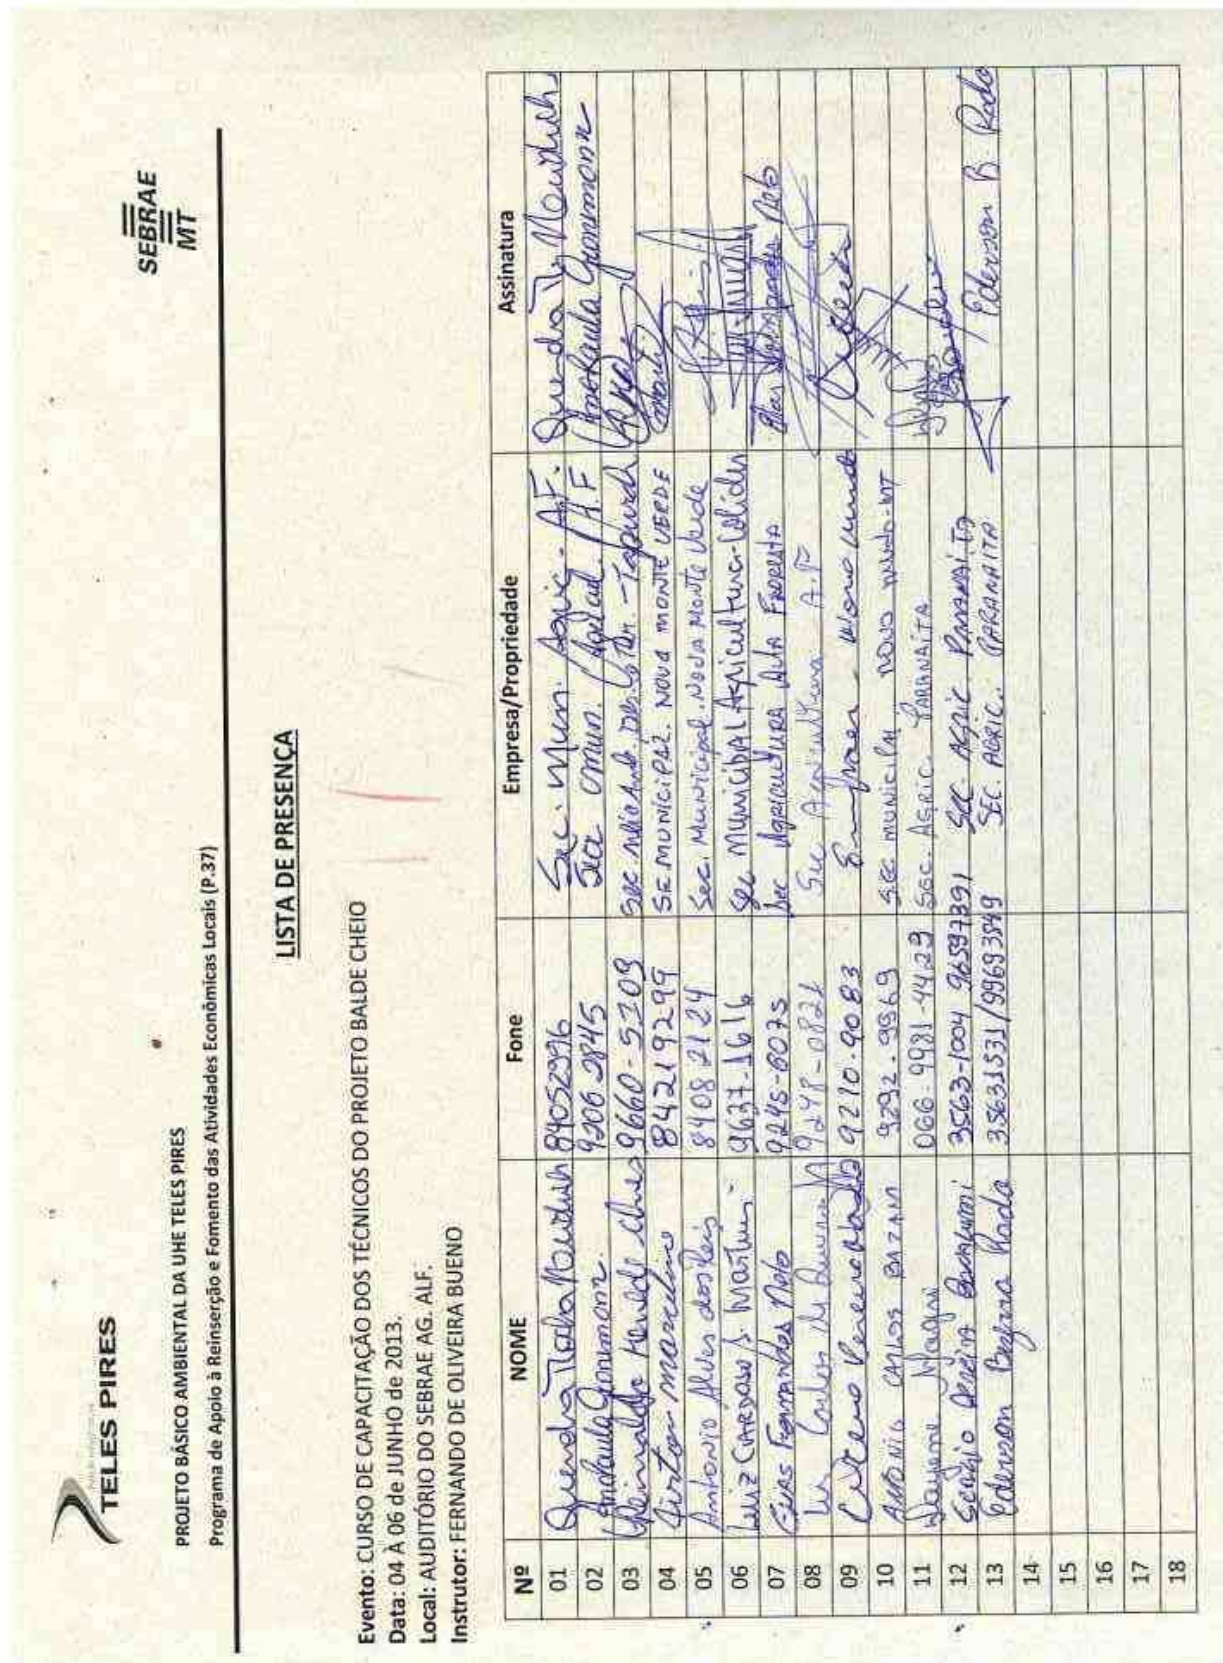 TELES PIRES
SEBRAE
MT
PROJETO BÁSICO AMBIENTAL DA UHE TELES PIRES
Programa de Apoio à Reinserção e Fomento das Atividades Econômicas Locais (P.37)
LISTA DE PRESENÇA
Evento: CURSO DE CAPACITAÇÃO DOS TÉCNICOS DO PROJETO BALDE CHEIO
Data: 04 A 06 de JUNHO de 2013.
Local: AUDITÓRIO DO SEBRAE AG. ALF.
Instrutor: FERNANDO DE OLIVEIRA BUENO
Nº NOME Fone Empresa/Propriedade Assinatura
01 84052996 Sec. Mun. Agric. A.F.
02 9206 2845 A.F
03 9660-5209
04 Airton Marcelino 84219299 SE. MUNICIPAL. NOVA MONTE VERDE
05 Antonio Alves dos Reis 8408 2124 Sec. Municipal. Nova Monte Verde
06 Luiz CARDOSO S. Martins 9637-1616 Sec Municipal Agricultura-Colider
07 Elias Fernandes Neto 9245-6075 Sec Agricultura Alta Floresta
08 Luiz Carlos 9248-0821 Sec Agricultura A.F
09 Cicero Pereira 9210.9083 Novo mundo
10 ANTONIO CARLOS BAZAN 9292-9969 SEC MUNICIPAL NOVO MUNDO-MT
11 066-9981-4429 SEC. AGRIC. PARANAÍTA
12 Sergio 3563-1004 96597391 SEC. AGRIC. PARANAÍTA
13 Ederson Bezerra Rado 35631531/99693849 SEC. AGRIC. PARANAITA Ederson B. Rado
14
15
16
17
18